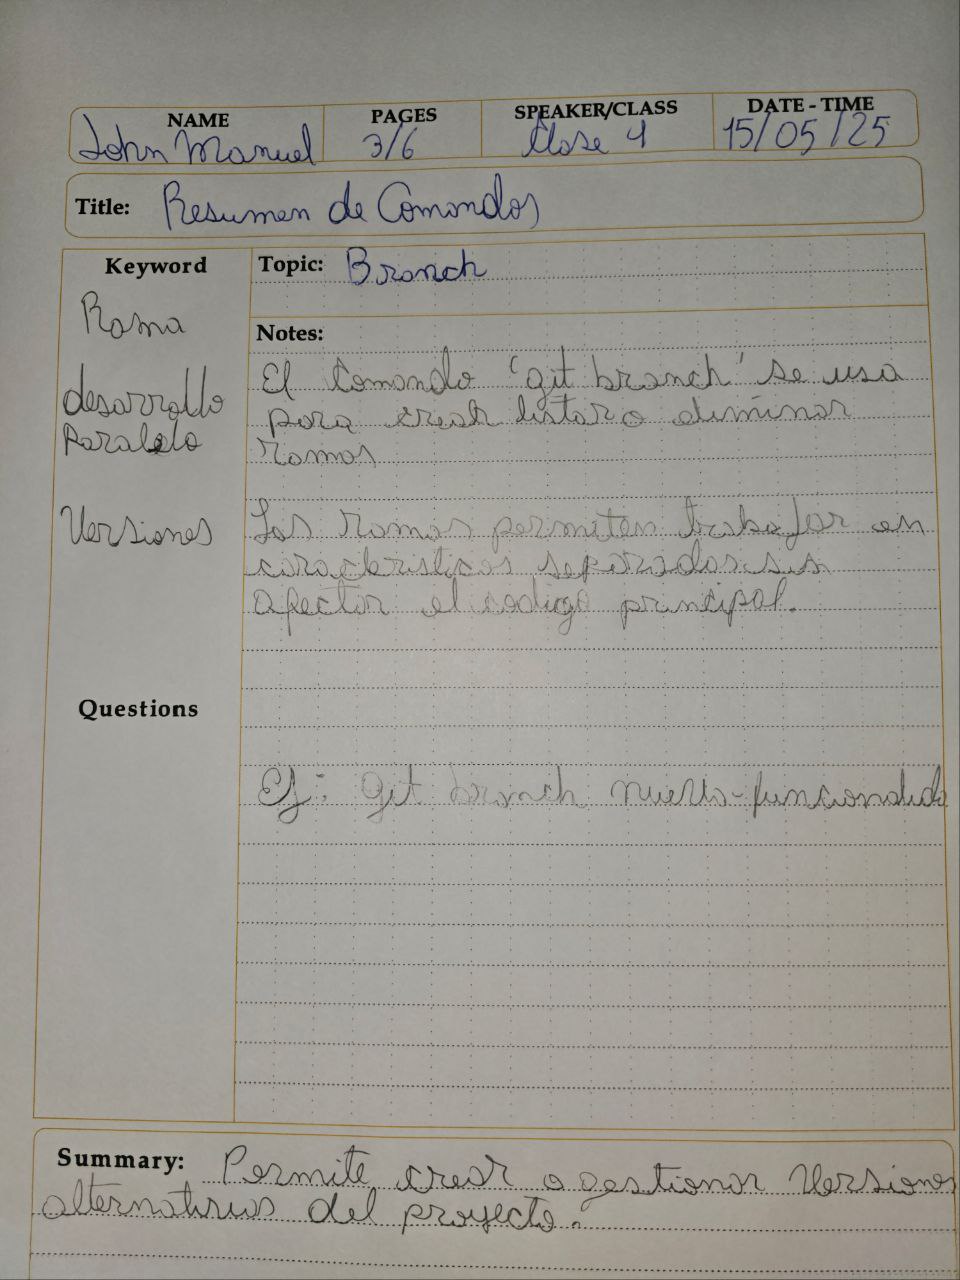 NAME PAGES SPEAKER/CLASS DATE - TIME
John Manuel 3/6 Clase 4 15/05/25
Title: Resumen de Comandos
Keyword
Topic: Branch
Rama
Notes:
desarrollo
Paralelo
Versiones
El Comando 'git branch' se usa
para crear listar o eliminar
ramas
Las ramas permiten trabajar en
caracteristicas separadas sin
afectar el codigo principal.
Questions
Ej: git branch nueva-funcionalida
Summary: Permite crear o gestionar Versiones
alternativas del proyecto.